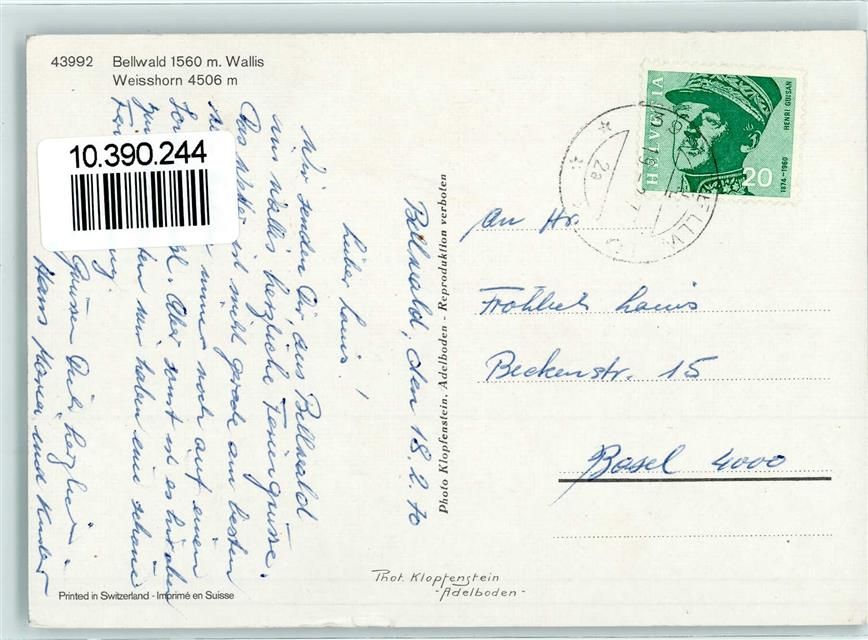 43992 Bellwald 1560 m. Wallis
Weisshorn 4506 m
10.390.244
HELVETIA
HENRI GUISAN
1874-1960
20
Bellwald, den 18.2.70
Lieber Louis!
Wir senden Dir, aus Bellwald
aus Wallis herzliche Feriengrüsse.
Das Wetter ist nicht grade am besten
immer noch auf einen
Aber sonst ist es hier oben
wir haben eine schöne
Grüssen Dich herzlich
Hans Maria und Kinder
An Hr.
Fröhlich Louis
Beckenstr. 15
Basel 4000
Photo Klopfenstein, Adelboden - Reproduktion verboten
Phot. Klopfenstein
- Adelboden -
Printed in Switzerland - Imprimé en Suisse